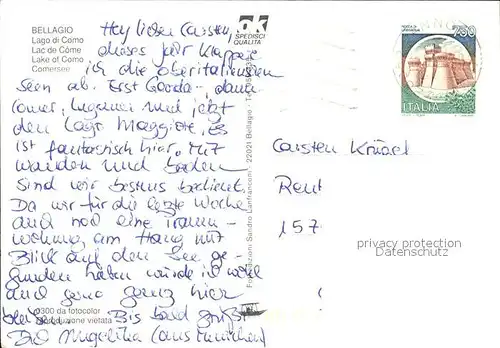 BELLAGIO
Lago di Como
Lac de Côme
Lake of Como
Comersee
ok
SPEDISCI
QUALITÀ
Hey lieber Carsten,
dieses Jahr klappere
ich die oberitalienischen
Seen ab. Erst Garda- dann
Comer, Luganer und jetzt
den Lago Maggiore, Es
ist fantastisch hier, mit
wandern und baden
sind wir bestens bedient.
Da wir für die letzte Woche
auch noch eine Traum-
wohnung am Hang mit
Blick auf den See ge-
funden haben würde ich wohl
auch gerne ganz hier
bleiben. Bis bald grüßt
Die Angelika (aus München)
0300 da fotocolor
riproduzione vietata
Fotoedizioni Sandro Lanfranconi 22021 Bellagio
250
ITALIA
Carsten
Rent
157
privacy protection
Datenschutz